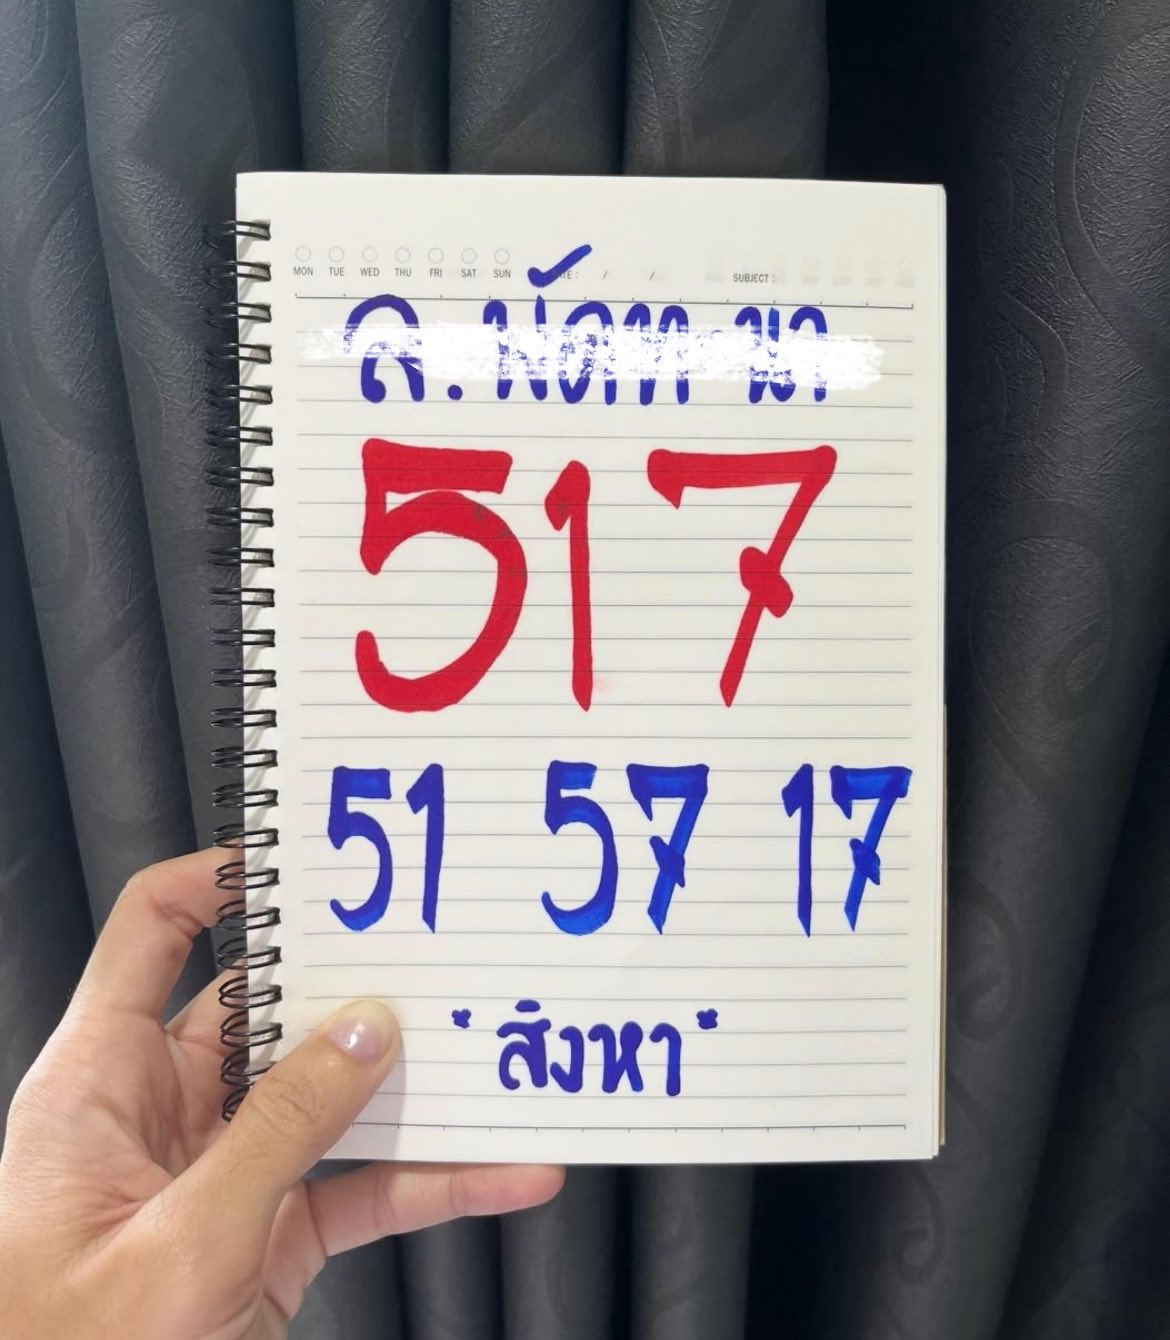 MON TUE WED THU FRI SAT SUN / / SUBJECT :
517
51 57 17
"สิงหา"